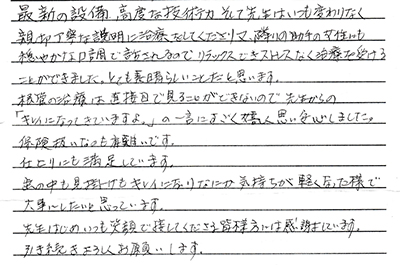 最新の設備、高度な技術力、そして先生はいつも変わりなく
親切丁寧な説明に治療をしてくださり又、隣りの助手の女性にも
穏やかな口調で話されるのでリラックスできストレスなく治療を受ける
ことができました。とても素晴らしいことだと思います。
根管の治療は直接目で見ることができないので先生からの
「キレイになってきていますよ。」の一言にすごく嬉しく思い安心しました。
保険扱いなのも有難いです。
仕上りにも満足しています。
歯の中も見掛けもキレイになりなにか気持ちが軽くなった様で
大事にしたいと思っています。
先生はじめいつも笑顔で接してくださる皆様方には感謝しています。
引き続きよろしくお願いします。